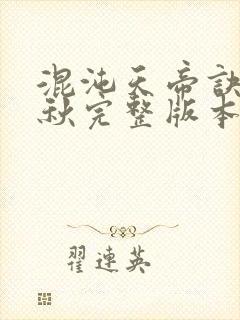 混沌天帝訣
秋完整版本
翟連英